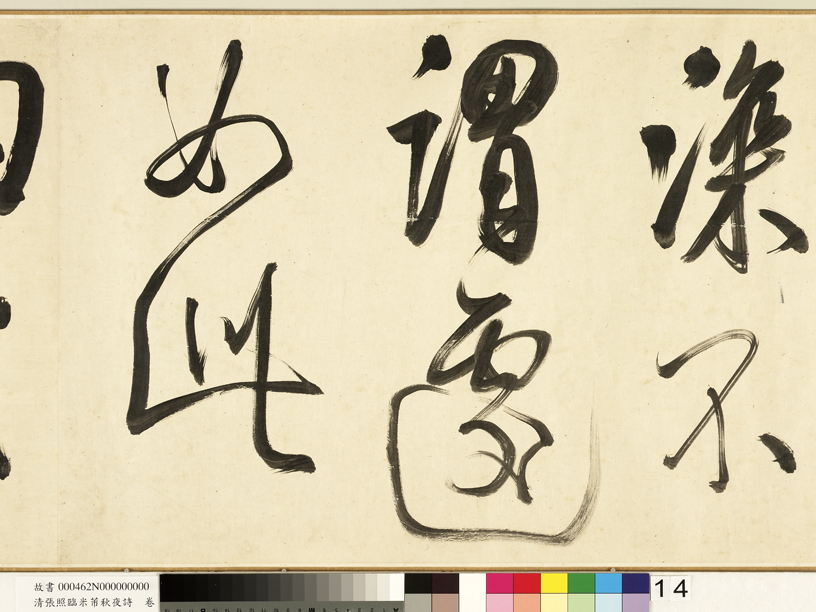 不
謂遽
如此
故書 000462N000000000
清張照臨米芾秋夜詩 卷
14